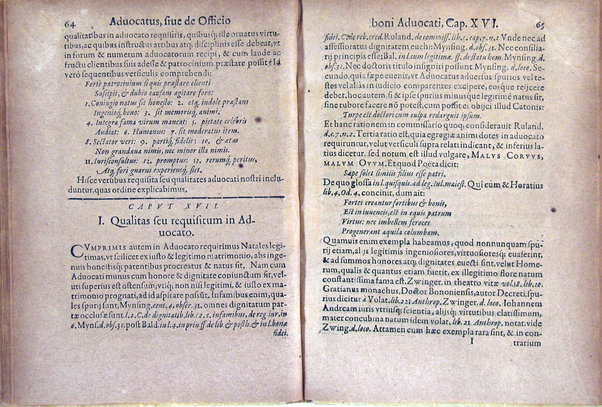 64 Advocatus, siue de Officio
qualitatibus in advocato requisitis, quibusq́; ille ornatus virtuti-
bus, ac quibus instructus artibus atq́; disciplinis esse debeat, vt
in forum & numerum advocatorum recipi, & cum laude ac
fructu clientibus suis adesse & patrocinium præstare possit? Id a
vetò sequentibus versiculis comprehendi:
Forte patrocinium siquis præstare clienti
Suscipit, & dubio causam agitare foro:
1. Coningio natus sit honesto: 2. atq́, indole præstans
Ingenioq́, bono: 3. sit memoriq́, animi.
4. Integra fama virum maneat: 5. pietate celebris
Audiat: 6. Humanus: 7. sit moderatus item.
8. Sectator veri: 9. partiq́, fidelis: 10. & ætas
Non grandæua nimis, nec minor illa nimis.
11. Iurisconsultus: 12. promptus: 13. rerumq́, peritus,
Atq́, fori gnarus experiensq́, siet.
Hisce versibus requisita seu qualitates advocati nostri inclu-
duntur, quas ordine explicabimus.
CAPVT XVII.
I. Qualitas seu requisitum in Ad-
vocato.
CVMPRIMIS autem in Advocato requirimus Natales legi-
timas, vt scilicet ex iusto & legitimo matrimonio, abs in-
genuis honestisq́; parentibus procreatus & natus sit. Nam cum
Advocati munus cum honore & dignitate coniunctum sit, vel-
uti superius est ostensum, vtiq́; non nisi legitimi, & iusto ex ma-
trimonio prognati, ad id aspirare possunt. Infamibus enim, qua-
les spurij sunt, Mynsing. cent. 2. obser. 31. omnes dignitatum por-
tæ occlusæ sunt. l. 2. C. de dignitatib. lib. 12. c. infamibus, de reg. iur. in
6. Myns. d. obs. 31. post Bald. in l. 4. in prin. ff. de lib & posth. & in l. bonæ
fidei.
boni Advocati, Cap. XVI. 65
fidei. C. de reb. cred. Ruland. de commiss. lib. 2. cap. 7. n. 1. Vnde nec ad
assessoratus dignitatem euehi: Mynsing. d. obs. 31. Nec consilia-
rij principis esse: Bal. in l. cum legitimæ. ff. de statu hom. Mynsing. d.
obs. 31. Nec doctoris titulo insigniri possunt Mynsing. d. loco. Se-
cundo, quia sæpe euenit, vt Advocatus aduersus spurius vel te-
stes vel alia in iudicijs actitet & excipiat, eosque coneturq́; reijcere
debet, hoc autem, si & ipse spurius minusque legitimè natus sit,
sine rubore facere nõ potest, cum possit ei obijci illud Catonis:
Turpe est doctori cum culpa redarguit ipsum.
Et hanc rationem in commissario quoq; considerauit Ruland.
d. c. 7. n. 2. Tertia ratio est, quia egregiæ animi dotes in advocato
requiruntur, velut versiculi supra relati indicant, & inferius la-
tius dicetur, sed notum est illud vulgare, MALVS CORVVS,
MALVM OVVM. Et quod Poëta dicit:
Sæpe solet similis filius esse patri.
De quo glossa in l. quisquis. ad leg. Iul. maiest. Qui cum & Horatius
lib. 4. Od. 4. concinit, dum ait:
Fortes creantur fortibus & bonis,
Est in iuuencis, est in equis patrum
Virtus: nec imbellem feroces
Progenerant aquilæ columbam.
Quamuis enim exempla habeamus, quod nonnunquam spu-
rij etiam, alijs legitimis ingeniosiores, virtuosioresq́; extiterint,
& ad summos honores atq́; dignitates euecti sint, velut de Hom-
erum, qualis & quantus etiam fuerit, ex illegitimo flore natum
constantissima fama est. Zwinger. in theatro vitæ vol. 18. lib. 10.
Gratianus monachus, Doctor Bononiensis, autor Decreti, spu-
rius dicitur à Volat. lib. 21. Anthrop. Zwinger. d. loco. Iohannem
Andream iuris vtriusq́; scientia, alijsq́; virtutibus clarissimum,
matre concubina natum idem volat. lib. 21 Anthrop. notat. vide
Zwing. d. loco. Attamen cum hæc exempla rara sint, & in con-
I trarium